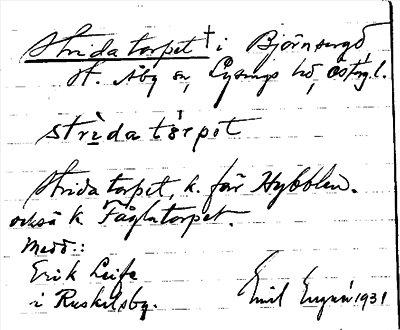 Stridatorpet † i Björnsngd,
St. Åby sn, Lysings hd, Östgl.
strìdatòrpet
Stridatorpet, k. för Hybblen.
också k Fåglatorpet.
Medd.:
Erik Leife
i Ruskilsby.
Emil 1931